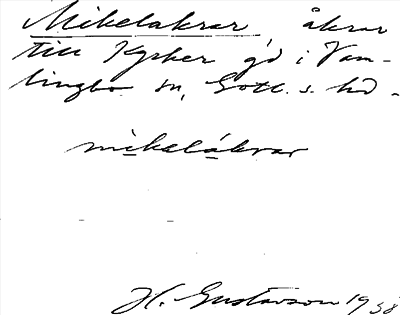 Mikelakrar, åkrar
till Kyrker gd i Vam-
lingbo sn, Gotl. s. hd.
mikelákrar
H. Gustavson 1938